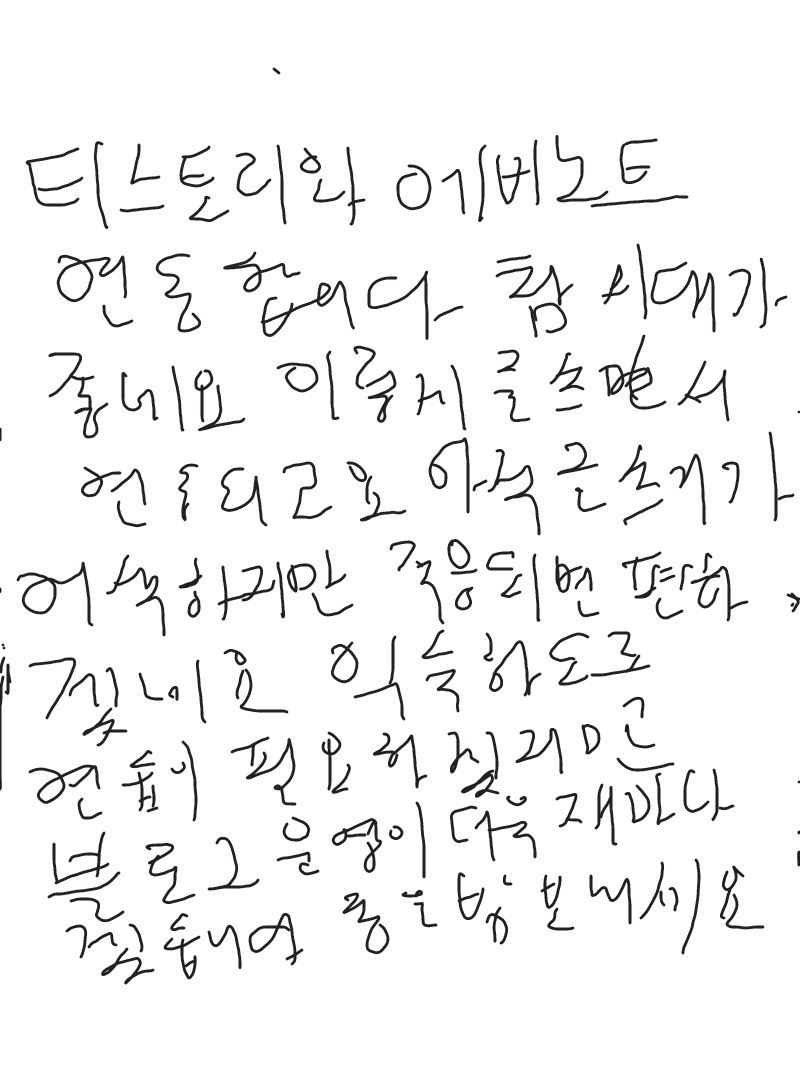 티스토리와 에버노트
연동 합니다. 참 시대가
좋네요 이렇게 글쓰면서
연동되고요 아직 글쓰기가
어색하지만 적응되면 편하
겠네요 익숙하도록
연습이 필요하겠지만
블로그 운영이 더욱 재미나
겠네여 좋은밤 보내세요